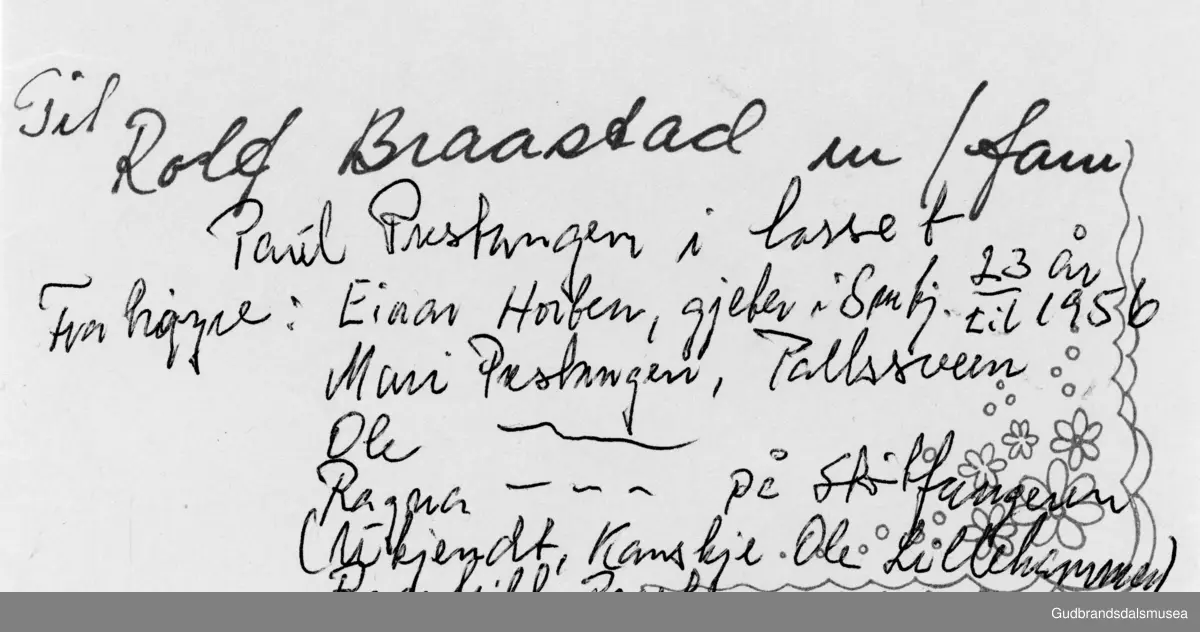 Til
Rolf Braastad m/fam
Paul Prestangen i lasset
Fra høyre: Einar Horten, gjeter i Spukj. 23 år til 1956
Mari Prestangen, Pallssveen
Ole
Ragna — — — på Skålfangeren
(Ukjendt, Kanskje Ole Lillehammer)
Gudbrandsdalsmusea